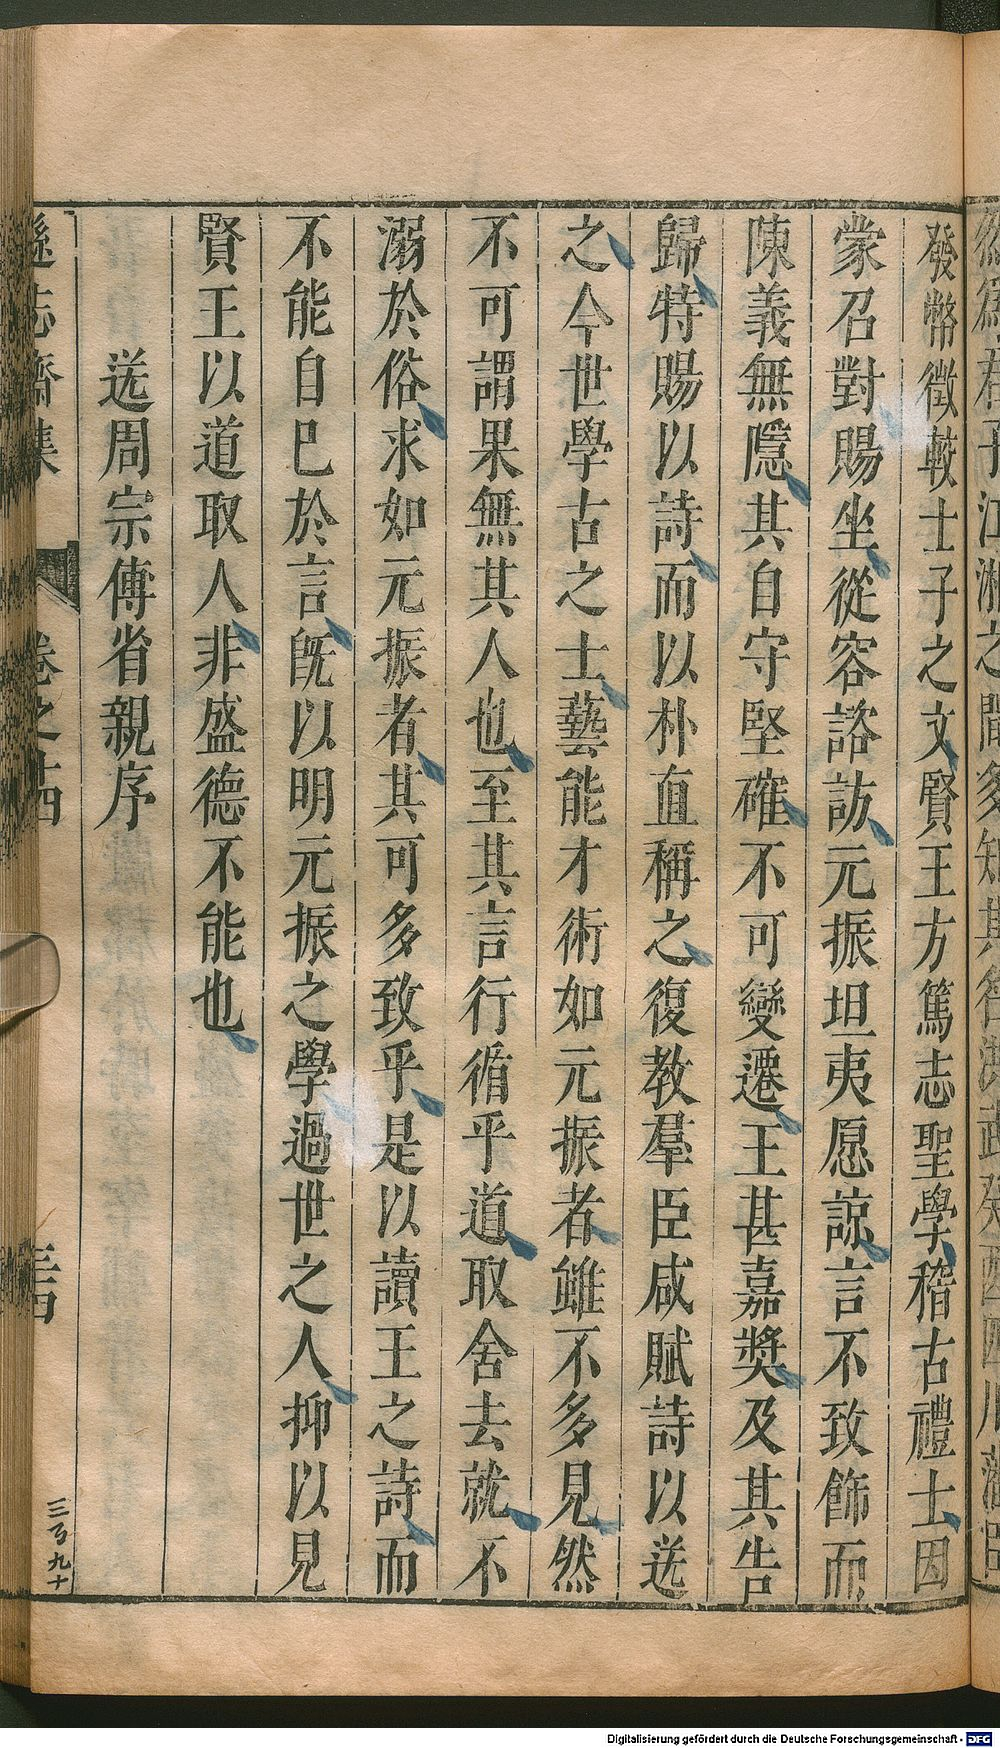 發幣徵較士子之文賢王方篤志聖學稽古禮士因
蒙召對賜坐從容諮訪元振坦夷愿諒言不致飾而
陳義無隱其自守堅確不可變遷王甚嘉獎及其告
歸特賜以詩而以朴直稱之復教羣臣咸賦詩以送
之今世學古之士藝能才術如元振者雖不多見然
不可謂果無其人也至其言行循乎道取舍去就不
溺於俗求如元振者其可多致乎是以讀王之詩而
不能自已於言旣以明元振之學過世之人抑以見
賢王以道取人非盛德不能也
送周宗傳省親序
遜志齋集
卷之十四
三四
三百九十
Digitalisierung gefördert durch die Deutsche Forschungsgemeinschaft - DFG